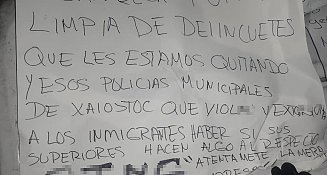 LIMPIA DE DELINCUETES
QUE LES ESTAMOS QUITANDO
Y ESOS POLICIAS MUNICIPALES
DE XALOSTOC QUE VIOL Y EXIGSOLA
A LOS INMIGRANTES HABER SI SUS
SUPERIORES HACEN ALGO AL RESPECTO
"ATENTAMETE LA MERA